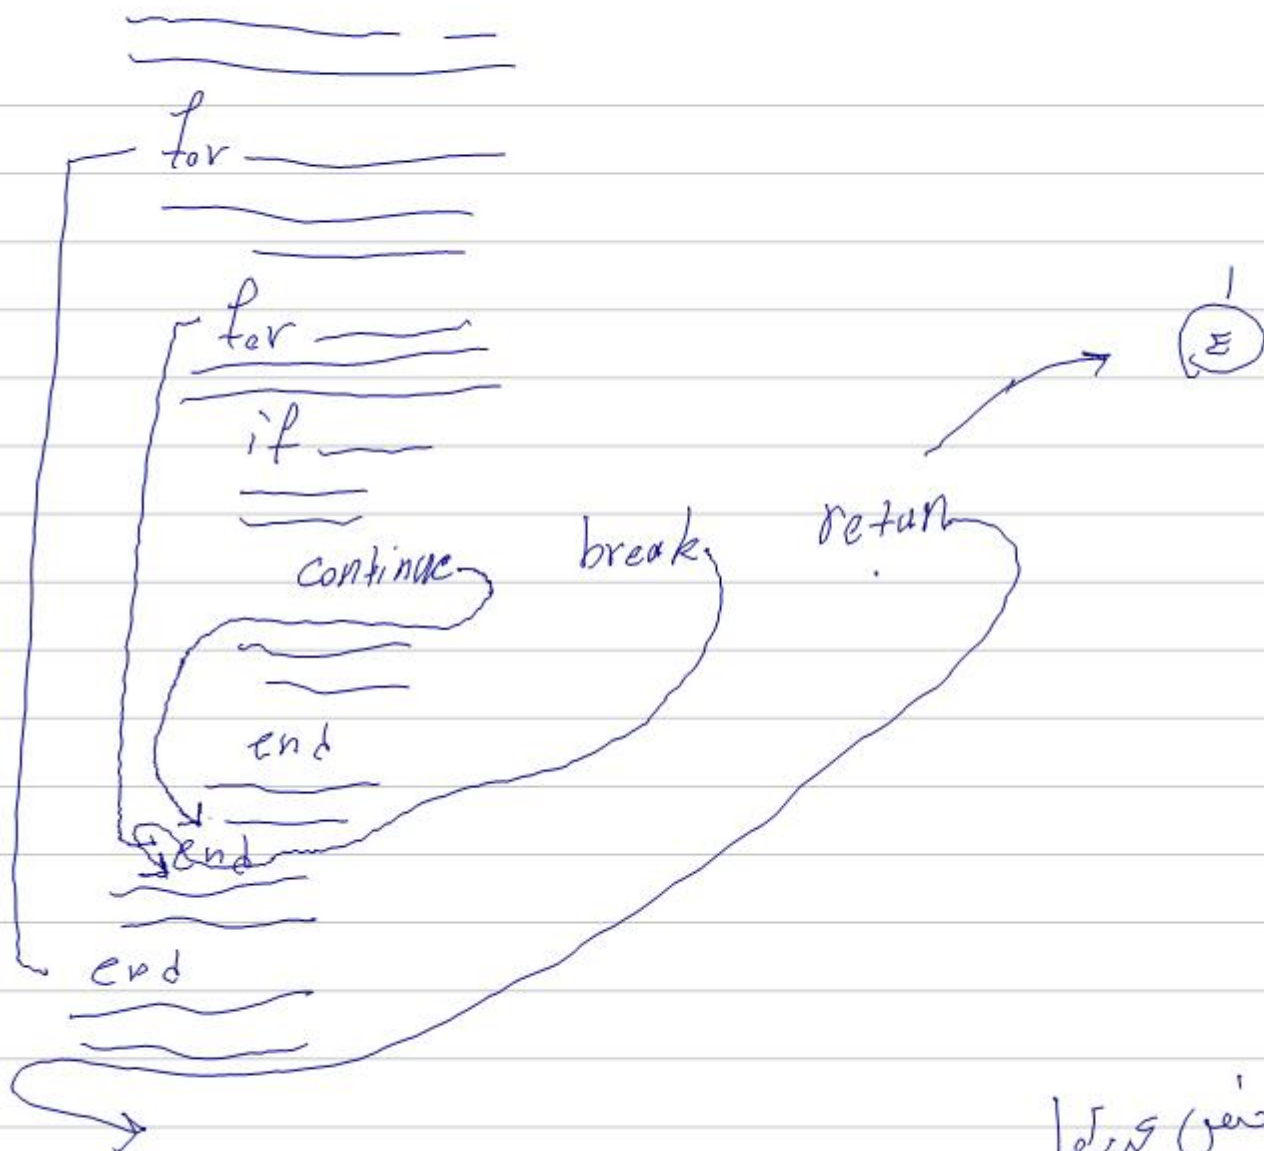 for
for
if
continue break return
end
end
end